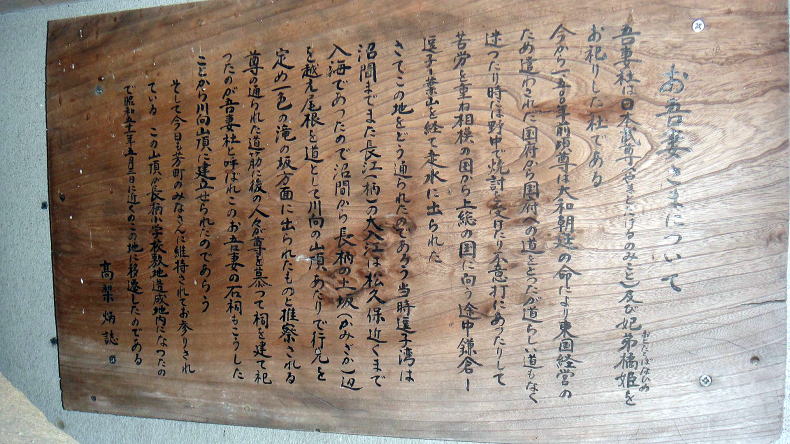 お吾妻さまについて
吾妻社は日本武尊(やまとたけるのみこと)及び妃弟橘姫を
おとたちばなひめ
お祀りした社である
今から一、八〇〇年前頃尊は大和朝廷の命により東国経営の
ため遣わされた国府から国府への道をとったが道らしい道もなく
迷ったり時には野中で焼討を受けたり不意打にあったりして
苦労を重ね相模の国から上総の国に向う途中鎌倉ー
逗子ー葉山を経て走水に出られた
さてこの地をどう通られたのであろう当時逗子湾は
沼間までまた長江(柄)の大入江は松久保近くまで
入海であったので沼間から長柄の土坂(かみざか)辺
を越え尾根を道として川向の山頂あたりで行先を
定め一色の滝の坂方面に出られたものと推察される
尊の通られた道筋に後の人々が尊を慕って祠を建て祀
ったのが吾妻社と呼ばれこのお吾妻の石祠もこうした
ことから川向山頂に建立せられたのであろう
そして今日も芳町のみなさんに維持されてお参りされ
ている この山頂が長柄小学校敷地造成地内になったの
で昭和五十一年五月三日に近くのこの地に移遷したのである
高梨炳誌